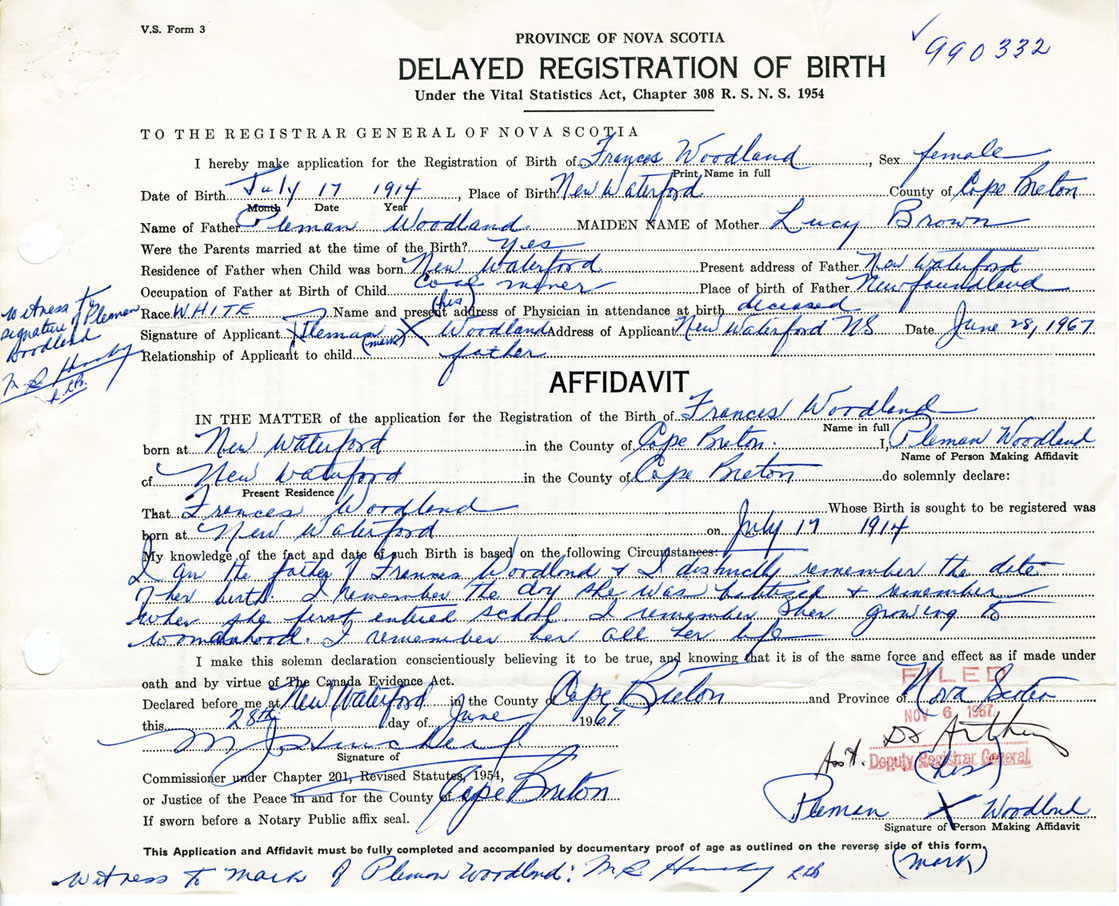 V.S. Form 3
990332
PROVINCE OF NOVA SCOTIA
DELAYED REGISTRATION OF BIRTH
Under the Vital Statistics Act, Chapter 308 R. S. N. S. 1954
TO THE REGISTRAR GENERAL OF NOVA SCOTIA
I hereby make application for the Registration of Birth of Frances Woodland, Sex female
Print Name in full
Date of Birth July 17 1914, Place of Birth New Waterford County of Cape Breton
Month Date Year
Name of Father Pleman Woodland MAIDEN NAME of Mother Lucy Brown
Were the Parents married at the time of the Birth? Yes
Residence of Father when Child was born New Waterford Present address of Father New Waterford
Occupation of Father at Birth of Child Coal miner Place of birth of Father Newfoundland
Race WHITE Name and present address of Physician in attendance at birth deceased
(his)
Signature of Applicant Pleman X Woodland Address of Applicant New Waterford NS Date June 28, 1967
(mark)
Relationship of Applicant to child father
Witness to
signature of Pleman
Woodland
AFFIDAVIT
IN THE MATTER of the application for the Registration of the Birth of Frances Woodland
Name in full
born at New Waterford in the County of Cape Breton. I, Pleman Woodland
Name of Person Making Affidavit
of New Waterford in the County of Cape Breton do solemnly declare:
Present Residence
That Frances Woodland Whose Birth is sought to be registered was
born at New Waterford on July 17 1914
My knowledge of the fact and date of such Birth is based on the following Circumstances:
I am the father of Frances Woodland & I distinctly remember the date
of her birth. I remember the day she was baptized & remember
when she first entered school. I remember her growing to
womanhood. I remember her all her life
I make this solemn declaration conscientiously believing it to be true, and knowing that it is of the same force and effect as if made under
oath and by virtue of The Canada Evidence Act.
Declared before me at New Waterford in the County of Cape Breton and Province of Nova Scotia
this 28th day of June 1967
FILED
NOV 6 1967
Signature of
Asst. Deputy Registrar General
Commissioner under Chapter 201, Revised Statutes, 1954,
or Justice of the Peace in and for the County of Cape Breton
If sworn before a Notary Public affix seal.
(his)
Pleman X Woodland
Signature of Person Making Affidavit
(mark)
This Application and Affidavit must be fully completed and accompanied by documentary proof of age as outlined on the reverse side of this form.
Witness to mark of Pleman Woodland: